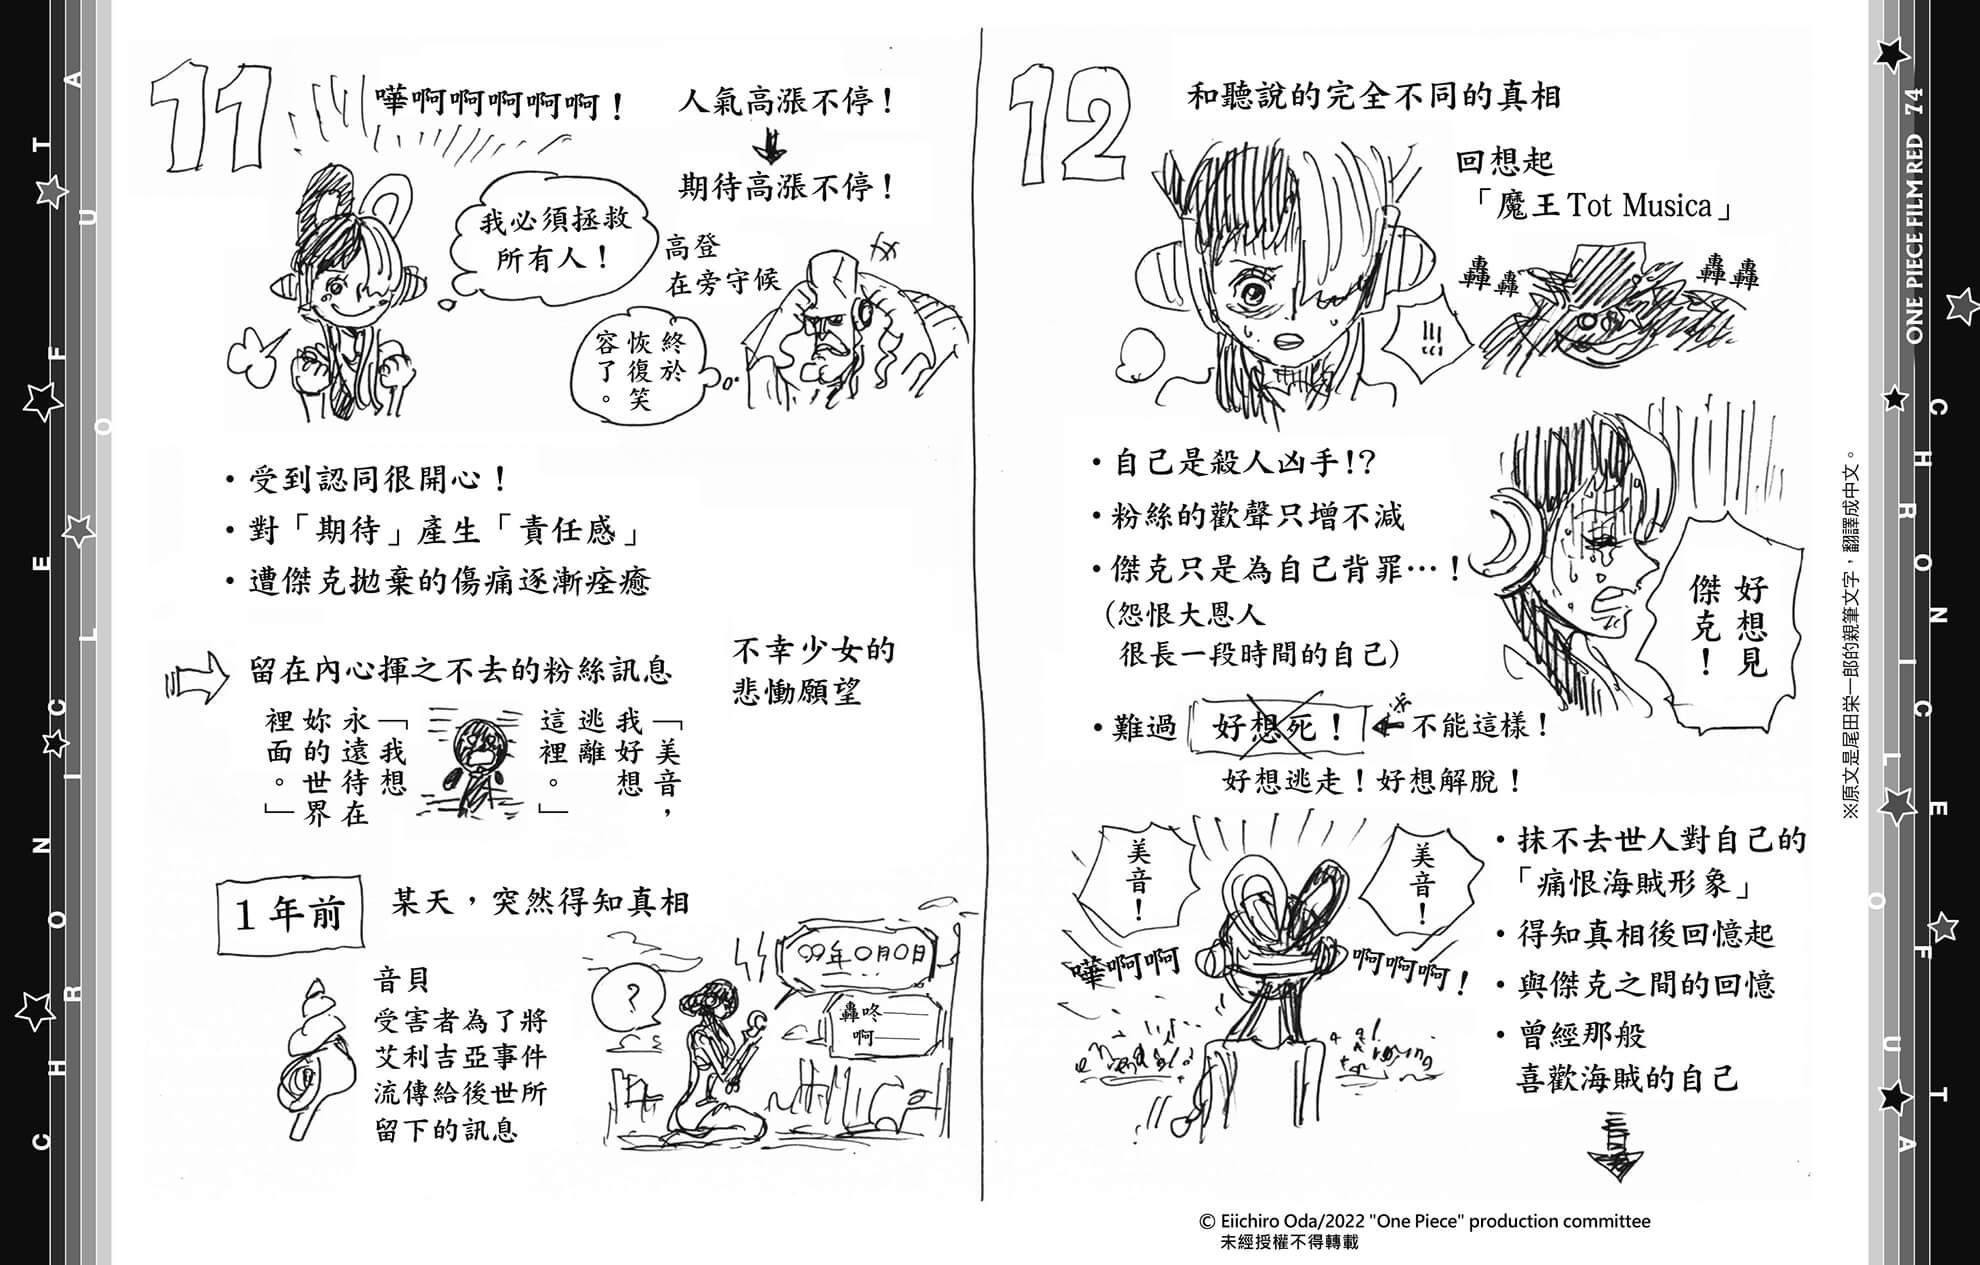 11
嘩啊啊啊啊啊！
人氣高漲不停！
期待高漲不停！
我必須拯救
所有人！
高登
在旁守候
終於
恢復笑
容了。
・受到認同很開心！
・對「期待」產生「責任感」
・遭傑克拋棄的傷痛逐漸痊癒
留在內心揮之不去的粉絲訊息
不幸少女的
悲慟願望
「美音，
我好想
逃離
這裡。」
「我想
永遠待在
妳的世界
裡面。」
1年前
某天，突然得知真相
音貝
受害者為了將
艾利吉亞事件
流傳給後世所
留下的訊息
?
○9年○月○日
轟咚——
啊——
12
和聽說的完全不同的真相
回想起
「魔王Tot Musica」
轟轟
轟轟
!!!
・自己是殺人凶手!?
・粉絲的歡聲只增不減
・傑克只是為自己背罪…！
(怨恨大恩人
很長一段時間的自己)
好想見
傑克！
・難過 好想死！ 不能這樣！
好想逃走！好想解脫！
美音！
美音！
嘩啊啊
啊啊啊！
・抹不去世人對自己的
「痛恨海賊形象」
・得知真相後回憶起
・與傑克之間的回憶
・曾經那般
喜歡海賊的自己
※原文是尾田栄一郎的親筆文字，翻譯成中文。
© Eiichiro Oda/2022 "One Piece" production committee
未經授權不得轉載
CHRONICLE OF UTA
ONE PIECE FILM RED 74
CHRONICLE OF UTA